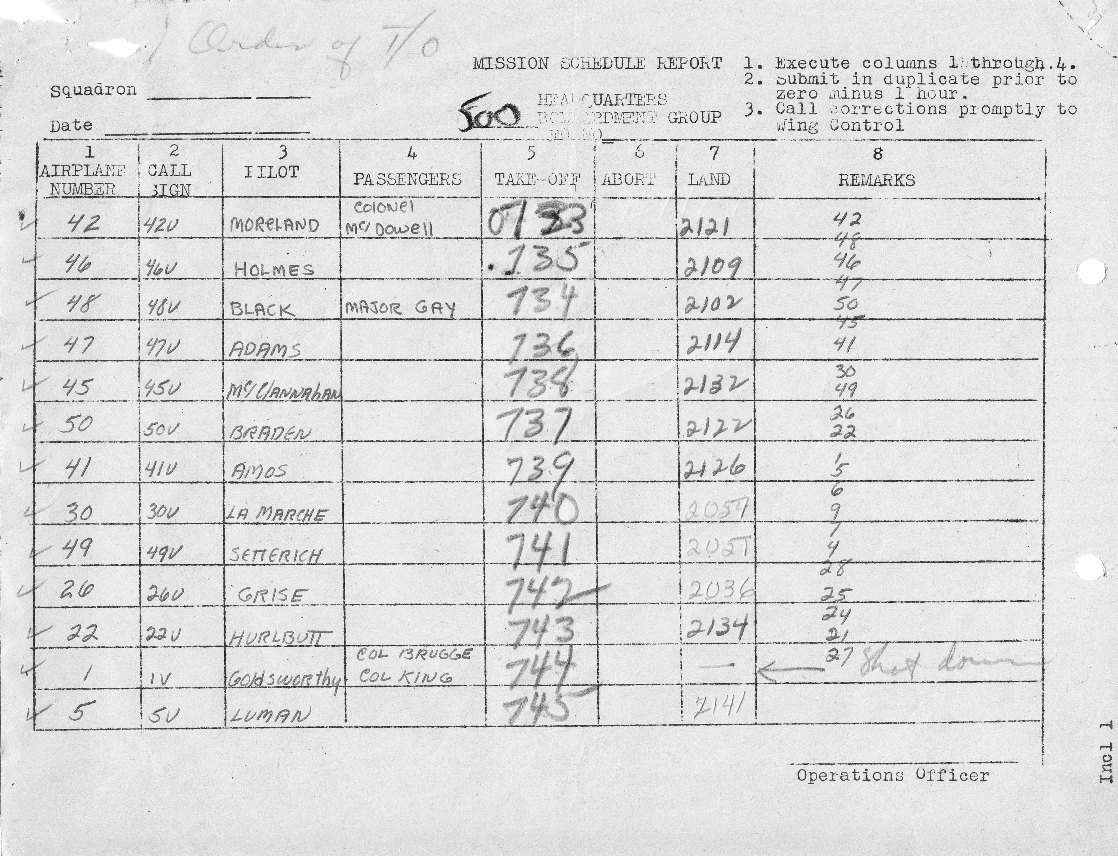 Order of T/O
MISSION SCHEDULE REPORT
1. Execute columns 1 through 4.
2. Submit in duplicate prior to
zero minus 1 hour.
3. Call corrections promptly to
Wing Control
Squadron
HEADQUARTERS
500 BOMBARDMENT GROUP
Date
1 2 3 4 5 6 7 8
AIRPLANE NUMBER CALL SIGN PILOT PASSENGERS TAKE-OFF ABORT LAND REMARKS
42 42V MORELAND Colonel McDowell 0733 2121 42
48
46 46V HOLMES 735 2109 46
47
48 48V BLACK MAJOR GAY 734 2102 50
45
47 47V ADAMS 736 2114 41
30
45 45V McClANNAhAN 738 2132 49
26
50 50V BRADEN 737 2122 22
41 41V AMOS 739 2126 1
5
6
30 30V LA MARCHE 740 9
7
49 49V SETTERICH 741 4
28
26 26V GRISE 742 2036 25
24
22 22V HURLBUTT 743 2134 21
1 1V GoldsworThy COL BRUGGE COL KING 744 — 27 Shot down
5 5V LUMAN 745 2141
Operations Officer
Incl 1